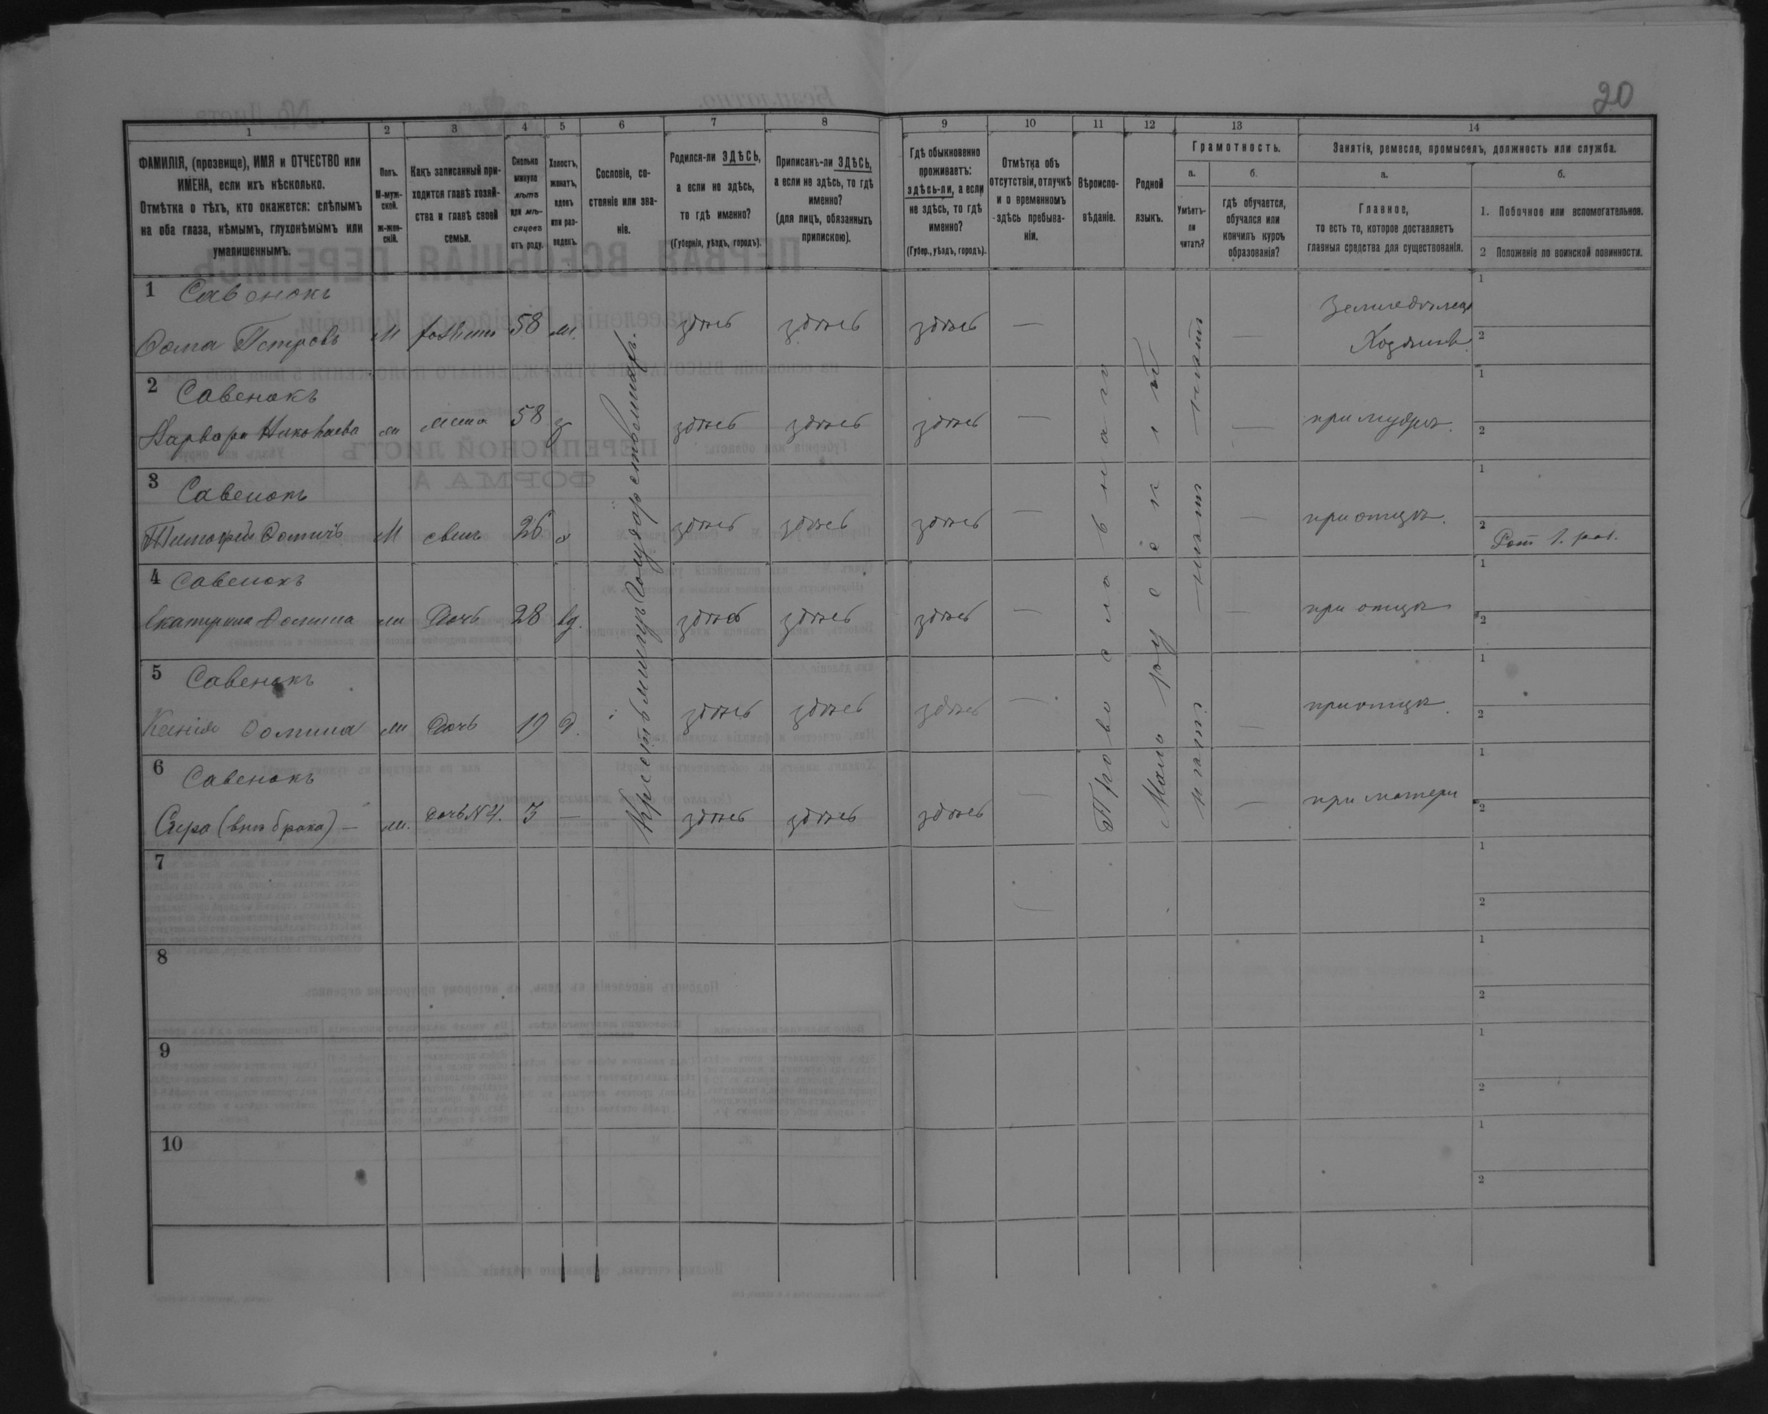 20
1 2 3 4 5 6 7 8 9 10 11 12 13 14
ФАМИЛІЯ, (прозвище), ИМЯ и ОТЧЕСТВО или
ИМЕНА, если ихъ нѣсколько.
Отмѣтка о тѣхъ, кто окажется: слѣпымъ
на оба глаза, нѣмымъ, глухонѣмымъ или
умалишеннымъ.
Полъ.
М-муж-
ской.
ж-жен-
скій.
Какъ записанный при-
ходится главѣ хозяй-
ства и главѣ своей
семьи.
Сколько
минуло
лѣтъ
или мѣ-
сяцевъ
отъ роду.
Холостъ,
женатъ,
вдовъ
или раз-
веденъ.
Сословіе, со-
стояніе или зва-
ніе.
Родился-ли ЗДѢСЬ,
а если не здѣсь,
то гдѣ именно?
(Губернія, уѣздъ, городъ).
Приписанъ-ли ЗДѢСЬ,
а если не здѣсь, то гдѣ
именно?
(для лицъ, обязанныхъ
припискою).
Гдѣ обыкновенно
проживаетъ:
здѣсь-ли, а если
не здѣсь, то гдѣ
именно?
(Губер., уѣздъ, городъ).
Отмѣтка объ
отсутствіи, отлучкѣ
и о временномъ
здѣсь пребыва-
ніи.
Вѣроиспо-
вѣданіе.
Родной
языкъ.
Грамотность.
а.
Умѣетъ-
ли
читать?
б.
гдѣ обучается,
обучался или
кончилъ курсъ
образованія?
Занятіе, ремесло, промыселъ, должность или служба.
а.
Главное,
то есть то, которое доставляетъ
главныя средства для существованія.
б.
1. Побочное или вспомогательное.
2 Положеніе по воинской повинности.
1 Савенокъ
Фома Петровъ М 58 здѣсь здѣсь здѣсь —
Хозяинъ
1
2
2 Савенокъ
Варвара Николаева ж жена 58 здѣсь здѣсь здѣсь —
при мужѣ.
1
2
3 Савенокъ
Тимофей Фомичъ М сынъ 26 здѣсь здѣсь здѣсь —
при отцѣ.
1
2
4 Савенокъ
Екатерина Фомина ж Дочь 28 вд. здѣсь здѣсь здѣсь —
при отцѣ
1
2
5 Савенокъ
Ксенія Фомина ж Дочь 19 д. здѣсь здѣсь здѣсь —
при отцѣ.
1
2
6 Савенокъ
(внѣ брака) — ж. дочь N 4. 3 — здѣсь здѣсь здѣсь —
при матери
1
2
Православнаго
Малорусскій
нѣтъ
нѣтъ
нѣтъ
7
1
2
8
1
2
9
1
2
10
1
2